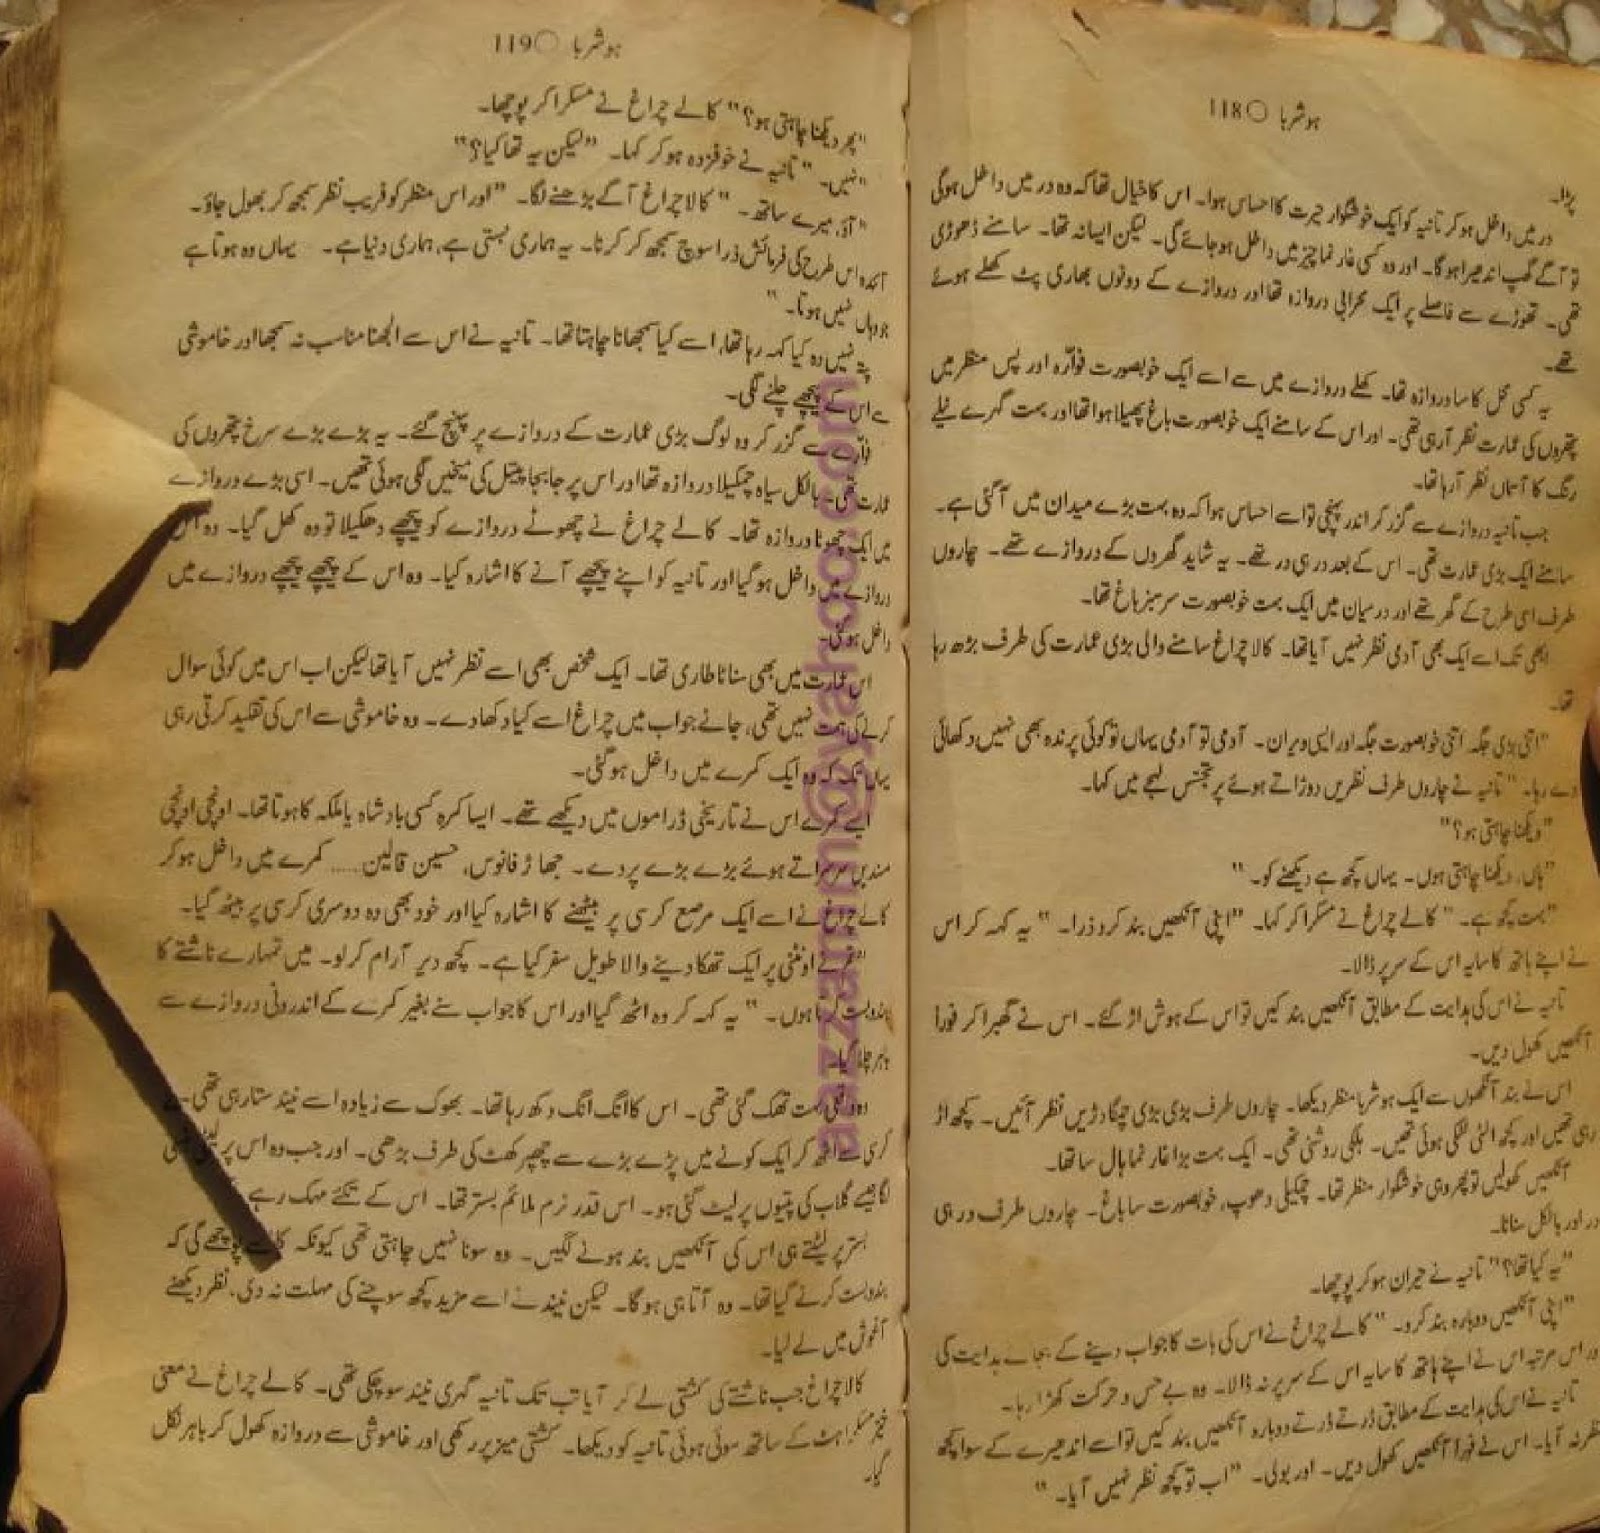 ہوشربا ○ 118
پڑا۔
در میں داخل ہو کر تانیہ کو ایک خوشگوار حیرت کا احساس ہوا۔ اس کا خیال تھا کہ وہ در میں داخل ہوگی
تو آگے گھپ اندھیرا ہوگا۔ اور وہ کسی غار نما چیز میں داخل ہو جائے گی۔ لیکن ایسا نہ تھا۔ سامنے ڈھوڑی
تھی۔ تھوڑے سے فاصلے پر ایک محرابی دروازہ تھا اور دروازے کے دونوں بھاری پٹ کھلے ہوئے
تھے۔
یہ کسی محل کا سا دروازہ تھا۔ کھلے دروازے میں سے اسے ایک خوبصورت فوّارہ اور پس منظر میں
پتھروں کی عمارت نظر آ رہی تھی۔ اور اس کے سامنے ایک خوبصورت باغ پھیلا ہوا تھا اور بہت گہرے نیلے
رنگ کا آسماں نظر آ رہا تھا۔
جب تانیہ دروازے سے گزر کر اندر پہنچی تو اسے احساس ہوا کہ وہ بہت بڑے میدان میں آ گئی ہے۔
سامنے ایک بڑی عمارت تھی۔ اس کے بعد در ہی در تھے۔ یہ شاید گھروں کے دروازے تھے۔ چاروں
طرف اسی طرح کے گھر تھے اور درمیان میں ایک بہت خوبصورت سرسبز باغ تھا۔
ابھی تک اسے ایک بھی آدمی نظر نہیں آیا تھا۔ کالا چراغ سامنے والی بڑی عمارت کی طرف بڑھ رہا
تھا۔
"اتنی بڑی جگہ اتنی خوبصورت جگہ اور ایسی ویران۔ آدمی تو آدمی یہاں تو کوئی پرندہ بھی نہیں دکھائی
دے رہا۔" تانیہ نے چاروں طرف نظریں دوڑاتے ہوئے پر تجسّس لہجے میں کہا۔
"دیکھنا چاہتی ہو؟"
"ہاں، دیکھنا چاہتی ہوں۔ یہاں کچھ ہے دیکھنے کو۔"
"بہت کچھ ہے۔" کالے چراغ نے مسکرا کر کہا۔ "اپنی آنکھیں بند کرو ذرا۔" یہ کہہ کر اس
نے اپنے ہاتھ کا سایہ اس کے سر پر ڈالا۔
تانیہ نے اس کی ہدایت کے مطابق آنکھیں بند کیں تو اس کے ہوش اڑ گئے۔ اس نے گھبرا کر فوراً
آنکھیں کھول دیں۔
اس نے بند آنکھوں سے ایک ہوشربا منظر دیکھا۔ چاروں طرف بڑی بڑی چمگادڑیں نظر آئیں۔ کچھ اڑ
رہی تھیں اور کچھ الٹی لٹکی ہوئی تھیں۔ ہلکی روشنی تھی۔ ایک بہت بڑا غار نما ہال سا تھا۔
آنکھیں کھولیں تو پھر وہی خوشگوار منظر تھا۔ چمکیلی دھوپ، خوبصورت سا باغ۔ چاروں طرف در ہی
در اور بالکل سناٹا۔
"یہ کیا تھا؟" تانیہ نے حیران ہو کر پوچھا۔
"اپنی آنکھیں دوبارہ بند کرو۔" کالے چراغ نے اس کی بات کا جواب دینے کے بجائے ہدایت کی
اور اس مرتبہ اس نے اپنے ہاتھ کا سایہ اس کے سر پر نہ ڈالا۔ وہ بے حس و حرکت کھڑا رہا۔
تانیہ نے اس کی ہدایت کے مطابق ڈرتے ڈرتے دوبارہ آنکھیں بند کیں تو اسے اندھیرے کے سوا کچھ
نظر نہ آیا۔ اس نے فوراً آنکھیں کھول دیں۔ اور بولی۔ "اب تو کچھ نظر نہیں آیا۔"
ہوشربا ○ 119
"پھر دیکھنا چاہتی ہو؟" کالے چراغ نے مسکرا کر پوچھا۔
"نہیں۔" تانیہ نے خوفزدہ ہو کر کہا۔ "لیکن یہ تھا کیا؟"
"آؤ، میرے ساتھ۔" کالا چراغ آگے بڑھنے لگا۔ "اور اس منظر کو فریب نظر سمجھ کر بھول جاؤ۔
آئندہ اس طرح کی فرمائش ذرا سوچ سمجھ کر کرنا۔ یہ ہماری بستی ہے، ہماری دنیا ہے۔ یہاں وہ ہوتا ہے
جو وہاں نہیں ہوتا۔"
پتہ نہیں وہ کیا کہہ رہا تھا، اسے کیا سمجھانا چاہتا تھا۔ تانیہ نے اس سے الجھنا مناسب نہ سمجھا اور خاموشی
سے اس کے پیچھے چلنے لگی۔
فوّارے سے گزر کر وہ لوگ بڑی عمارت کے دروازے پر پہنچ گئے۔ یہ بڑے بڑے سرخ پتھروں کی
عمارت تھی۔ بالکل سیاہ چمکیلا دروازہ تھا اور اس پر جا بجا پیتل کی میخیں لگی ہوئی تھیں۔ اسی بڑے دروازے
میں ایک چھوٹا دروازہ تھا۔ کالے چراغ نے چھوٹے دروازے کو پیچھے دھکیلا تو وہ کھل گیا۔ وہ اس
دروازے میں داخل ہو گیا اور تانیہ کو اپنے پیچھے آنے کا اشارہ کیا۔ وہ اس کے پیچھے پیچھے دروازے میں
داخل ہو گئی۔
اس عمارت میں بھی سناٹا طاری تھا۔ ایک شخص بھی اسے نظر نہیں آیا تھا لیکن اب اس میں کوئی سوال
کرنے کی ہمت نہیں تھی، جانے جواب میں چراغ اسے کیا دکھا دے۔ وہ خاموشی سے اس کی تقلید کرتی رہی
یہاں تک کہ وہ ایک کمرے میں داخل ہو گئی۔
ایسے کمرے اس نے تاریخی ڈراموں میں دیکھے تھے۔ ایسا کمرہ کسی بادشاہ یا ملکہ کا ہوتا تھا۔ اونچی اونچی
مسندیں سرسراتے ہوئے بڑے بڑے پردے۔ جھاڑ فانوس، حسین قالین..... کمرے میں داخل ہو کر
کالے چراغ نے اسے ایک مرصع کرسی پر بیٹھنے کا اشارہ کیا اور خود بھی وہ دوسری کرسی پر بیٹھ گیا۔
"تم نے اونٹنی پر ایک تھکا دینے والا طویل سفر کیا ہے۔ کچھ دیر آرام کر لو۔ میں تمہارے ناشتے کا
بندوبست کرتا ہوں۔" یہ کہہ کر وہ اٹھ گیا اور اس کا جواب سنے بغیر کمرے کے اندرونی دروازے سے
باہر چلا گیا۔
وہ واقعی بہت تھک گئی تھی۔ اس کا انگ انگ دکھ رہا تھا۔ بھوک سے زیادہ اسے نیند ستا رہی تھی۔
کرسی سے اٹھ کر ایک کونے میں پڑے بڑے سے چھپر کھٹ کی طرف بڑھی۔ اور جب وہ اس پر لیٹی
لگا جیسے گلاب کی پتیوں پر لیٹ گئی ہو۔ اس قدر نرم ملائم بستر تھا۔ اس کے تکئے مہک رہے
بستر پر لیٹتے ہی اس کی آنکھیں بند ہونے لگیں۔ وہ سونا نہیں چاہتی تھی کیونکہ
بندوبست کرنے گیا تھا۔ وہ آتا ہی ہوگا۔ لیکن نیند نے اسے مزید کچھ سوچنے کی مہلت نہ دی، نظر دیکھنے
آغوش میں لے لیا۔
کالا چراغ جب ناشتے کی کشتی لے کر آیا تب تک تانیہ گہری نیند سو چکی تھی۔ کالے چراغ نے معنی
خیز مسکراہٹ کے ساتھ سوئی ہوئی تانیہ کو دیکھا۔ کشتی میز پر رکھی اور خاموشی سے دروازہ کھول کر باہر نکل
گیا۔
aazzamm@yahoo.com